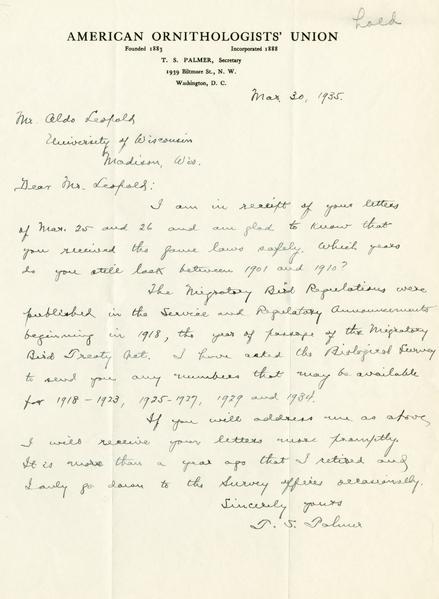 Lold
AMERICAN ORNITHOLOGISTS' UNION
Founded 1883 Incorporated 1888
T. S. PALMER, Secretary
1939 Biltmore St., N. W.
Washington, D. C.
Mar 30, 1935.
Mr. Aldo Leopold
University of Wisconsin
Madison, Wis.
Dear Mr. Leopold:
I am in receipt of your letters
of Mar. 25 and 26 and am glad to know that
you received the game laws safely. Which years
do you still lack between 1901 and 1910?
The Migratory Bird Regulations were
published in the Service and Regulatory Announcements
beginning in 1918, the year of passage of the Migratory
Bird Treaty Act. I have asked the Biological Survey
to send you any numbers that may be available
for 1918-1923, 1925-1927, 1929 and 1934.
If you will address me as above,
I will receive your letters more promptly.
It is more than a year ago that I retired and
I only go down to the Survey offices occasionally.
Sincerely yours
T. S. Palmer